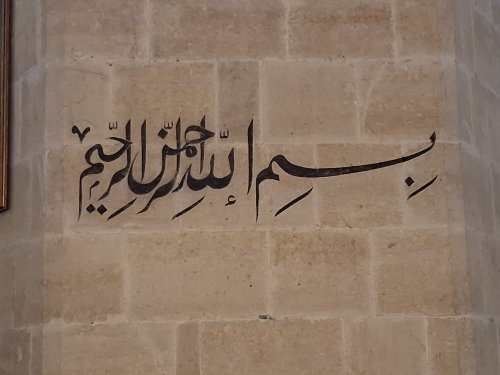 بِسمِ اللّهِ الرَّحمنِ الرَّحِيمِ